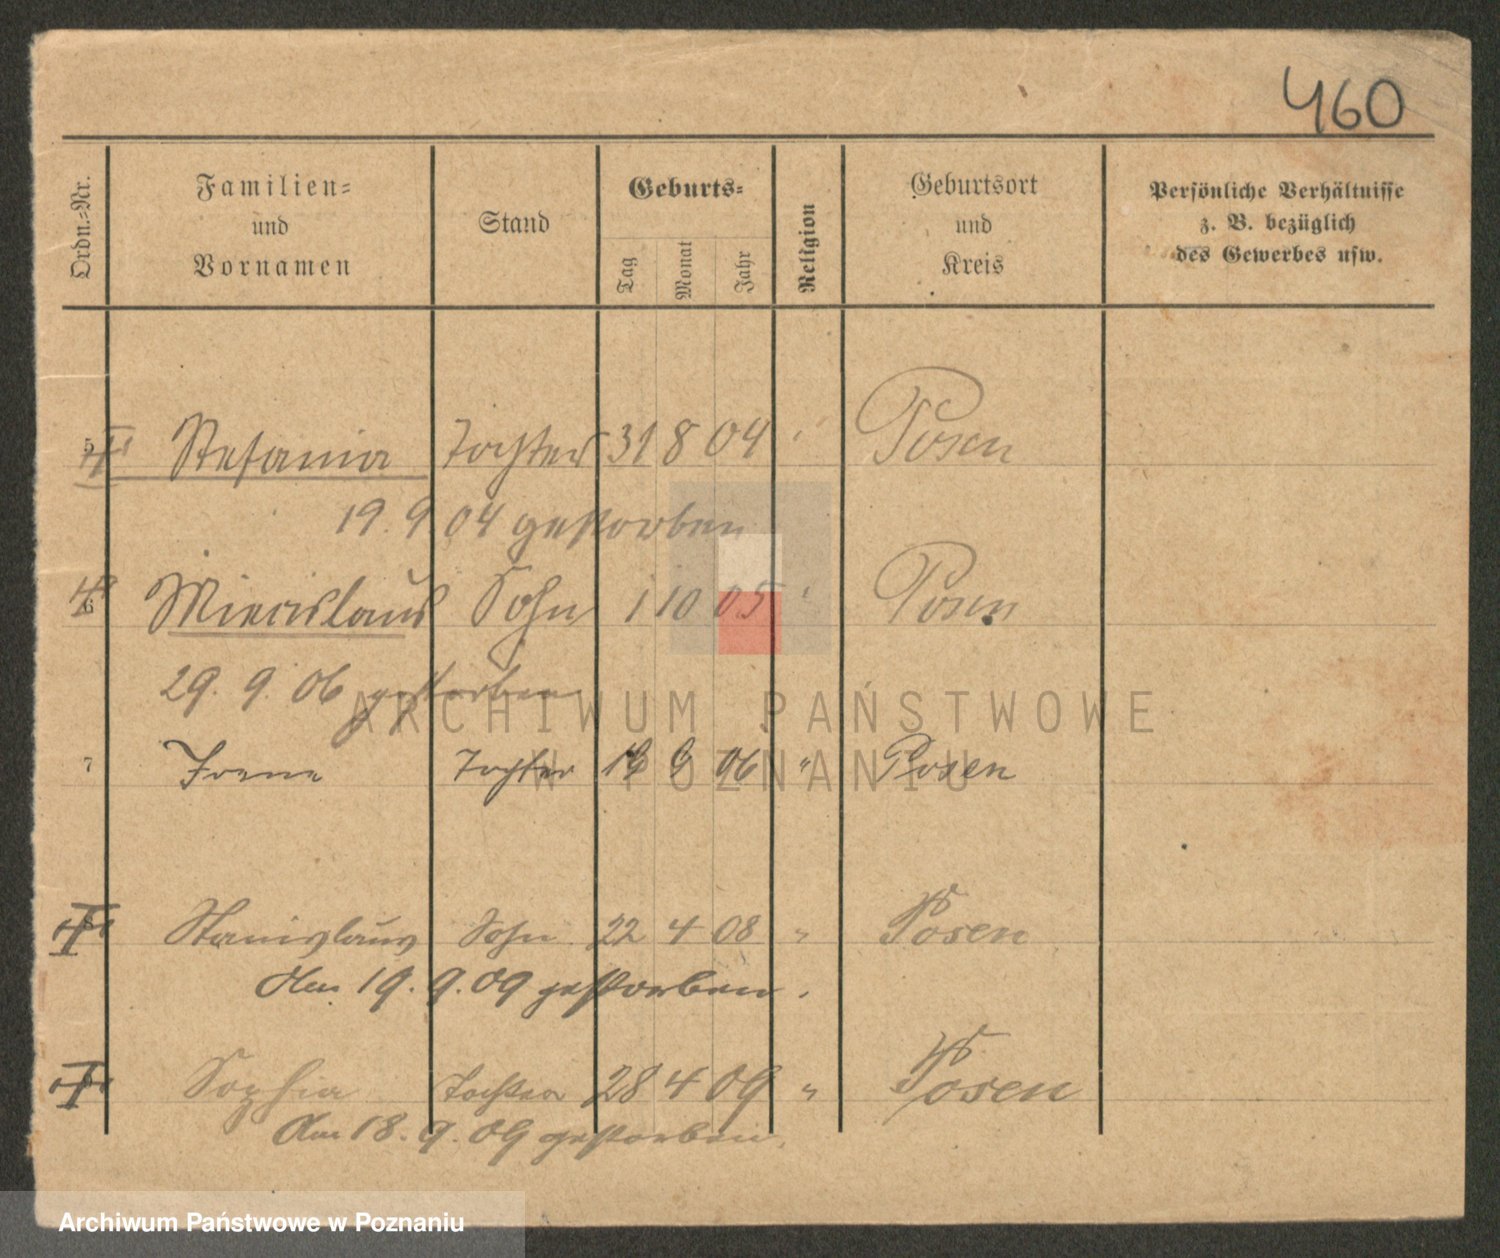 460
Ordn.-Nr.
Familien-
und
Vornamen
Stand
Geburts-
Tag
Monat
Jahr
Religion
Geburtsort
und
Kreis
Persönliche Verhältnisse
z. B. bezüglich
des Gewerbes usw.
5 Stefania Tochter 31 8 04 " Posen
19. 9 04 gestorben
6 Miecislaus Sohn 1 10 05 " Posen
29. 9. 06 gestorben
7 Irene Tochter 9 06 " Posen
Stanislaus Sohn 22 4 08 " Posen
Am 19. 9. 09 gestorben.
Sophia Tochter 28 4 09 " Posen
Am 18. 9. 09 gestorben.
ARCHIWUM PAŃSTWOWE
W POZNANIU
Archiwum Państwowe w Poznaniu